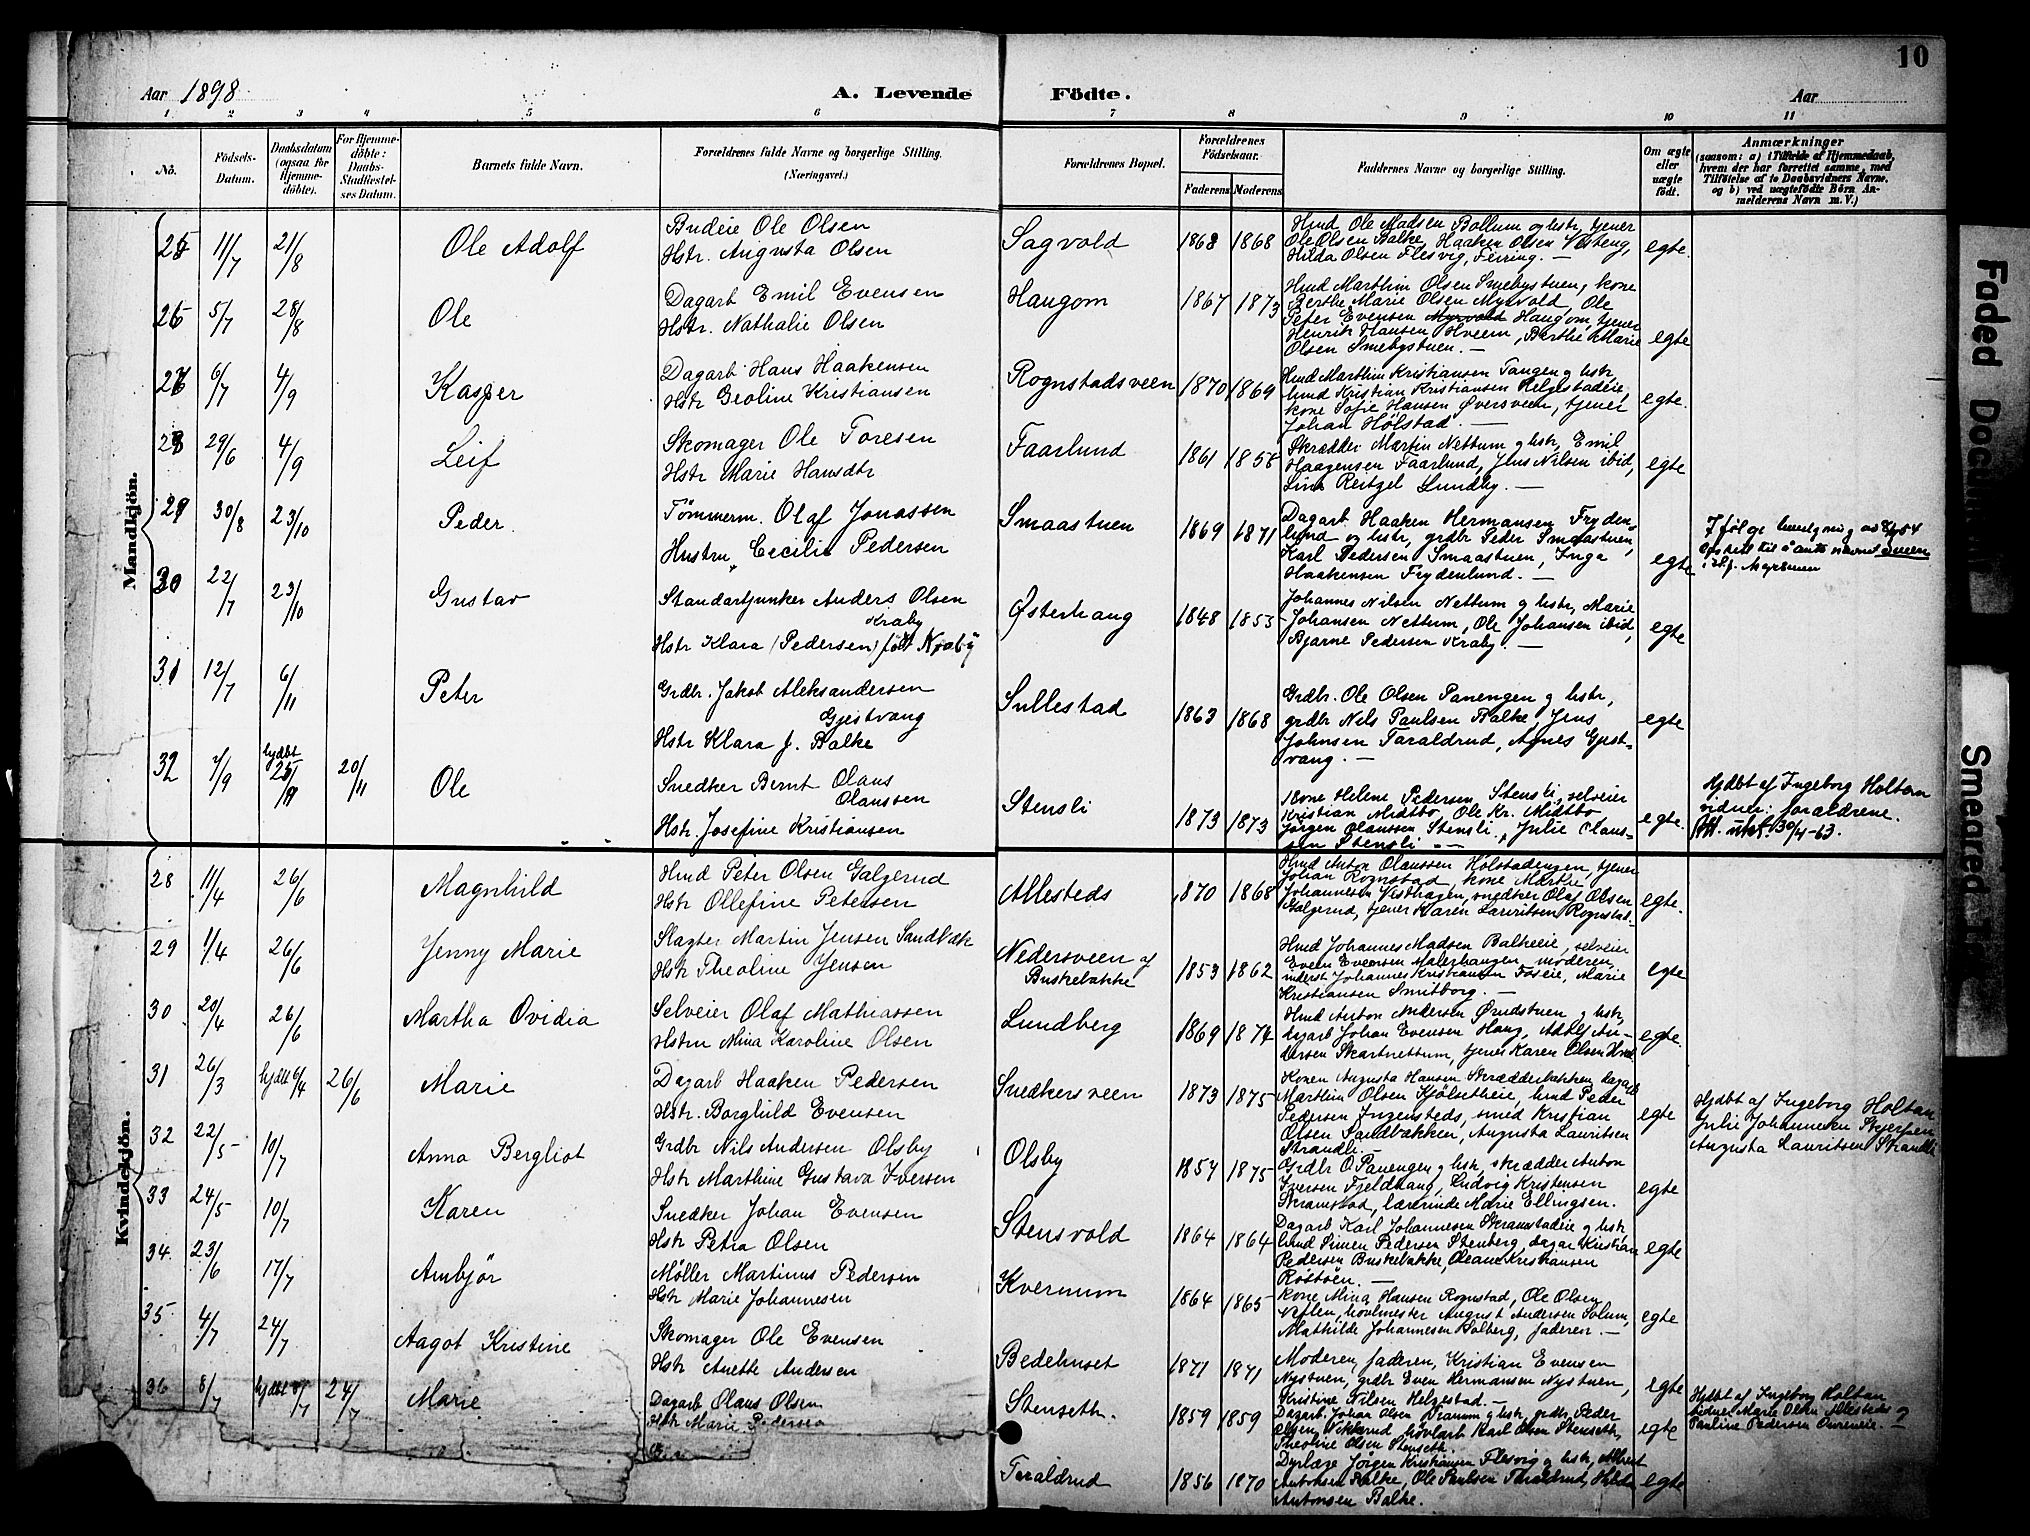 10
Aar 1898
A. Levende Födte.
Aar
1 2 3 4 5 6 7 8 9 10 11
No.
Födsels-Datum.
Daabsdatum (ogsaa for Hjemme-döbte).
For Hjemme-döbte: Daabs-Stadfæstel-ses Datum.
Barnets fulde Navn.
Forældrenes fulde Navne og borgerlige Stilling.
(Næringsvei.)
Forældrenes Bopæl.
Forældrenes Födselsaar.
Faderens Moderens
Faddernes Navne og borgerlige Stilling.
Om ægte eller uægte födt.
Anmærkninger
(saasom: a) i Tilfælde af Hjemmedaab, hvem der har forrettet samme, med Tilföielse af to Daabsvidners Navne, og b) ved uægtefödte Börn Anmelderens Navn m. V.)
Mandkjön.
25 11/7 21/8 Ole Adolf
Budeie Ole Olsen
Hstr. Augusta Olsen
Sagvold 1868 1868
Hmd Ole Madsen Bollum og hstr, tjener
Ole Olsen Balke, Haaken Olsen Vesteng,
Hilda Olsen Flesvig, Ferring. —
egte.
26 5/7 28/8 Ole
Dagarb Emil Evensen
Hstr. Nathalie Olsen
Haugom 1867 1873
Hmd Marthin Olsen Smebystuen, kone
Berthe Marie Olsen Myrvold, Ole
Peter Evensen Myrvold Haugom, tjener
Henrik Hansen Hveem, Berthe Marie
Olsen Smebystuen. —
egte
27 6/7 4/9 Kasper
Dagarb Hans Haakensen
Hstr Geoline Kristiansen
Rognstadsveen 1870 1869
Hmd Marthin Kristiansen Tangen og hstr,
hmd Kristian Kristiansen Helgestadeie,
kone Sofie Hansen Øversveen, tjener
Johan Hølstad. —
egte.
28 29/6 4/9 Leif
Skomager Ole Toresen
Hstr Marie Hansdtr
Faarlund 1861 1858
Skrædder Martin Nettum og hstr, Emil
Haagensen Faarlund, Jens Nilsen ibid,
Lina Reitzel Lundby. —
egte
29 30/8 23/10 Peder.
Tømmerm. Olaf Jonassen
Hustru Cecilie Pedersen
Smaastuen 1869 1871
Dagarb. Haaken Hermansen Fryden-
lund og hstr, grdbr Peder Smaastuen,
Karl Pedersen Smaastuen, Inga
Haakensen Frydenlund. —
egte
30 22/7 23/10 Gustav
Standartjunker Anders Olsen
Kraby
Hstr Klara (Pedersen) født Kraby
Østerhaug 1848 1853
Johannes Nilsen Nettum og hstr, Marie
Johansen Nettum, Ole Johansen ibid,
Bjarne Pedersen Kraby. —
egte
31 12/7 6/11 Peter
Grdbr. Jakob Aleksandersen
Gjestvang
Hstr Klara J. Balke
Sullestad 1863 1868
Grdbr. Ole Olsen Panengen og hstr,
grdbr Nils Paulsen Balke, Jens
Johnsen Taraldrud, Agnes Gjest-
vang. —
egte
32 7/9 hjdbt 20/11 Ole
Snedker Bernt Olaus
Olaussen
Hstr. Josefine Kristiansen
Stensli 1873 1873
Kone Helene Pedersen Stensli, selveier
Kristian Midtbø, Ole Kr. Midtbø
Jørgen Olaussen Stensli, Julie Olaus-
sen Stensli —
egte.
Hjdbt af Ingeborg Holtan
vidner: forældrene.
Att. utst. 30/4-63.
Kvindekjön.
28 11/4 26/6 Magnhild
Hmd Peter Olsen Galgerud
Hstr Ollefine Petersen
Allesteds 1870 1868
Hmd Anton Olaussen Holstadengen, tjener
Johan Rognstad, kone Marthe
Johannesen Vesthagen, snedker Olaf Olsen
Galgerud, tjener Karen Lauritsen Rognstad.
egte.
29 1/4 26/6 Jenny Marie
Slagter Martin Jensen Sandbæk
Hstr Theoline Jensen
Nedersveen af
Buskebakke 1853 1862
Hmd Johannes Madsen Balkeeie, selveier
Even Evensen Malerhaugen, moderen,
inderst Johannes Kristiansen Foseie, Marie
Kristiansen Smitborg. —
egte
30 20/4 26/6 Martha Ovidia
Selveier Olaf Mathiassen
Hstru Mina Karoline Olsen
Lundberg 1869 1874
Hmd Anton Andersen Grundstuen og hstr,
dagarb Johan Evensen Haug, Adolf An-
dersen Skartnettum, tjener Karen Olsen
egte.
31 26/3 hjdbt 6/4 26/6 Marie
Dagarb Haaken Pedersen
Hstr. Borghild Evensen
Snedkersveen 1873 1875
Konen Augusta Hansen Skrædderbakken, dagarb
Marthin Olsen Kjølsetheie, hmd Peder
Pedersen Ingensteds, smed Kristian
Olsen Sandbakken, Augusta Lauritsen
Strandli. —
egte
Hjdbt af Ingeborg Holtan
Julie Johannesen Stjerpen
Augusta Lauritsen Strandli
32 22/5 10/7 Anna Bergliot
Grdbr Nils Andersen Olsby
Hstr Marthine Gustava Iversen
Olsby 1854 1875
Grdbr O. Panengen og hstr, skrædder Anton
Iversen Fjeldhaug, Ludvig Kristensen
Skramstad, lærerinde Marie Ellingsen.
egte
33 24/5 10/7 Karen
Snedker Johan Evensen
Hstr Petra Olsen
Stensvold 1864 1864
Dagarb Karl Johannesen Skramstadeie og hstr
hmd Simen Pedersen Stenberg, dagar Kristian
Pedersen Buskebakke, Oleane Kristiansen
Røstøen. —
egte
34 23/6 17/7 Ambjør
Møller Martinus Pedersen
Hstr Marie Johannesen
Kvernum 1864 1865
Kone Mina Hansen Rognstad, Ole Olsen
Neflen, hovlmester August Andersen Solum,
Mathilde Johannesen Solberg, faderen. —
egte
35 4/7 24/7 Aagot Kristine
Skomager Ole Evensen
Hstr Anette Andersen
Bedehuset 1871 1871
Moderen, faderen, Kristian Evensen
Nystuen, grdbr Even Hermansen Nystuen,
Kristine Nilsen Helgestad. —
egte
36 8/7 hjdbt 8/7 24/7 Marie
Dagarb Olaus Olsen
Hstr Marie Pedersen
Stenseth. 1859 1859
Dagarb. Johan Olsen Bramum og hstr, grdbr. Peder
Olsen Vekkerud, hovlarb Karl Olsen Stenseth,
Theoline Olsen Stenseth.
egte
Hjdbt af Ingeborg Holtan
vidner Marie Olsen Allesteds og
Pauline Pedersen
Taraldrud 1856 1870
Dyrlæge Jørgen Kristiansen Flesvig og hstr, Albert
Antonsen Balke, Ole Paulsen Taraldrud, Hilda
Antonsen Balke.
egte
Faded Document
Smeared